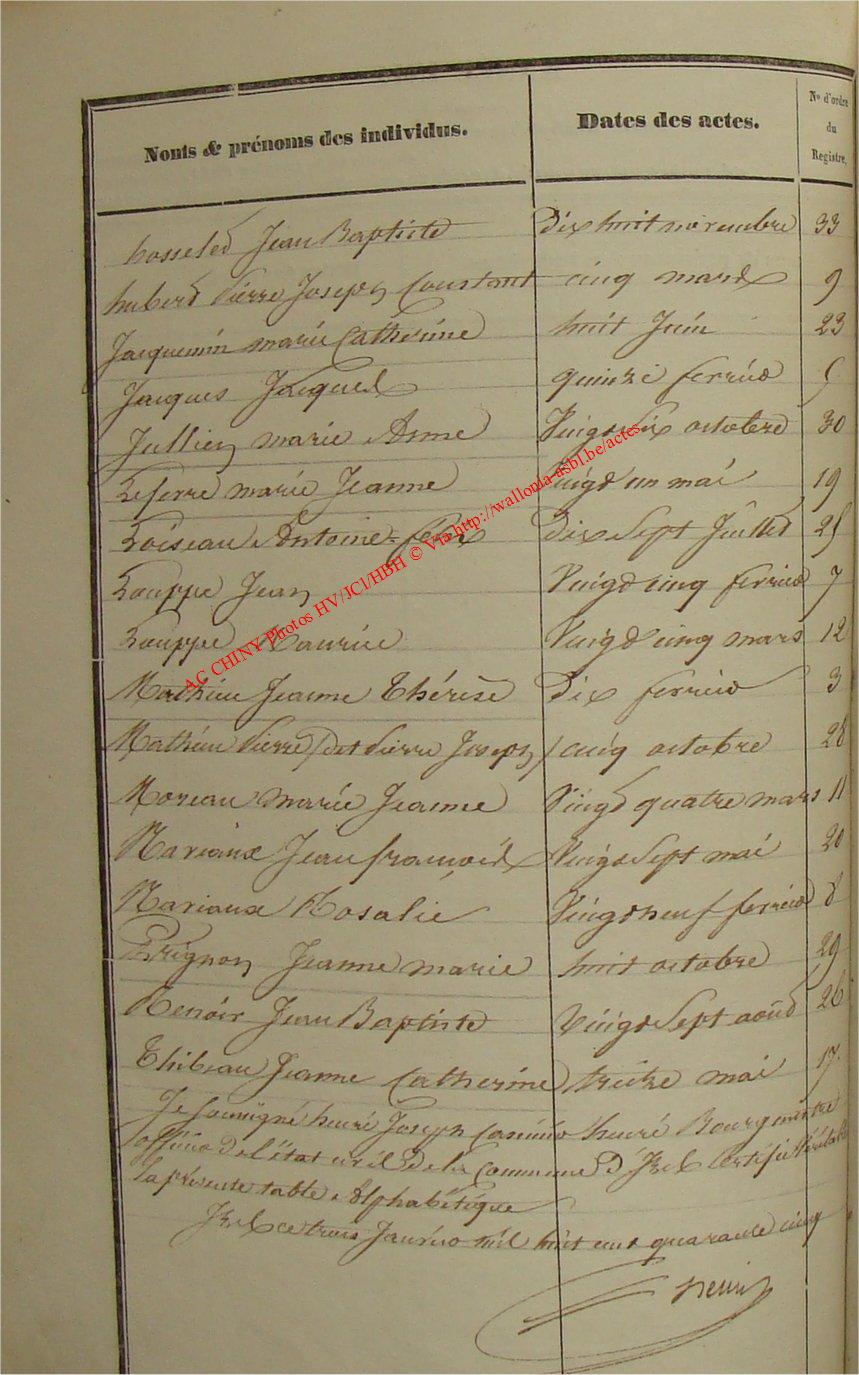 Noms & prénoms des individus. Dates des actes. N° d'ordre du Registre.
hosseled Jean Baptiste Dix huit novembre 33
huberd Pierre Joseph Constant cinq mars 9
Jacquemin marie Catherine huit Juin 23
Jacques Jacques quinze ferrier 5
Jullien marie Anne Vingd six octobre 30
Leferre marie Jeanne Vingd un mai 19
Loiseau Antoine félix Dix Sept Juilled 25
Louppe Jean Vingd cinq ferrier 7
Louppe Maurice Vingd cinq mars 12
Mathieu Jeanne Thérèse Dix ferrier 3
Mathieu Pierre / dit Pierre Joseph / cinq octobre 28
Moreau marie Jeanne Vingd quatre mars 11
Mariaux Jean françois Vingd Sept mai 20
Mariaux Rosalie Vingd neuf ferrier 8
Perignon Jeanne marie huit octobre 29
Renoir Jean Baptiste Vingd Sept aoûd 26
Thibeau Jeanne Catherine treize mai 17
Je Soussigné henri Joseph Casimir henri Bourgmestre
officier de l'état civil de la Commune d'Izel Certifie Véritable
la présente table Alphabétique
Izel ce trois Janvier mil huit cent quarante cinq
henri
AC CHINY Photos HV/JCI/HBH © Via http://wallonia-asbl.be/actes